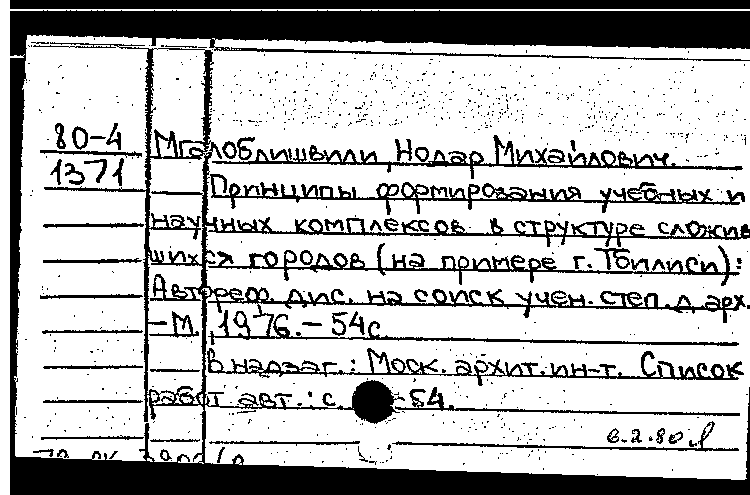 80-4
1371
Мгалоблишвили, Нодар Михайлович.
Принципы формирования учебных и
научных комплексов в структуре сложив
шихся городов (на примере г. Тбилиси):
Автореф. дис. на соиск учен. степ. д. арх.
-М., 1976. - 54с.
В надзаг.: Моск. архит. ин-т. Список
работ авт.: с. -54.
6.2.80